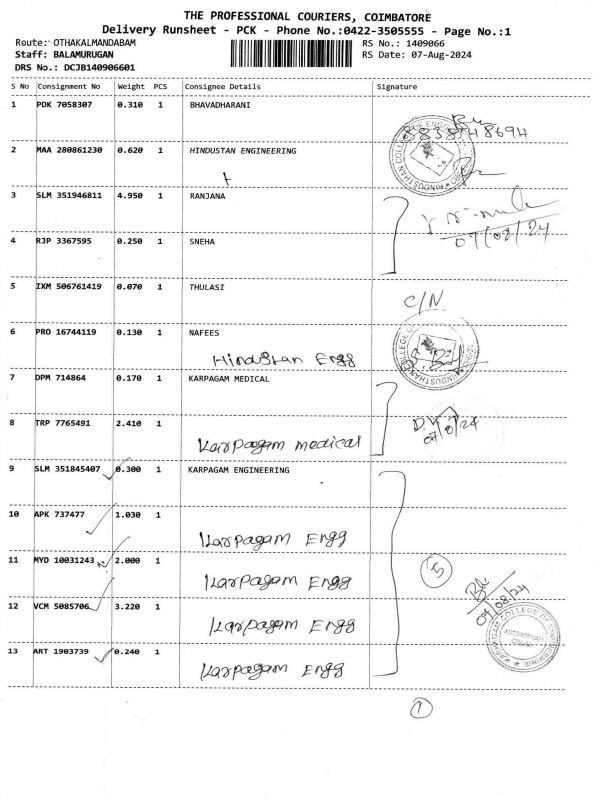 THE PROFESSIONAL COURIERS, COIMBATORE
Delivery Runsheet - PCK - Phone No.:0422-3505555 - Page No.:1
Route: OTHAKALMANDABAM RS No.: 1409066
Staff: BALAMURUGAN RS Date: 07-Aug-2024
DRS No.: DCJB140906601
S No Consignment No Weight PCS Consignee Details Signature
1 PDK 7058307 0.310 1 BHAVADHARANI
8838148694
2 MAA 280861230 0.620 1 HINDUSTAN ENGINEERING
3 SLM 351946811 4.950 1 RANJANA
07/08/24
4 RJP 3367595 0.250 1 SNEHA
5 IXM 506761419 0.070 1 THULASI
C/N
6 PRO 16744119 0.130 1 NAFEES
Hindustan Engg
7 DPM 714864 0.170 1 KARPAGAM MEDICAL
8 TRP 7765491 2.410 1
Karpagam medical
9 SLM 351845407 0.300 1 KARPAGAM ENGINEERING
10 APK 737477 1.030 1
Karpagam Engg
11 MYD 10031243 2.000 1
Karpagam Engg
5
12 VCM 5085706 3.220 1
Karpagam Engg
07/08/24
KARPAGAM COLLEGE OF ENGINEERING
13 ART 1903739 0.240 1
Karpagam Engg
1